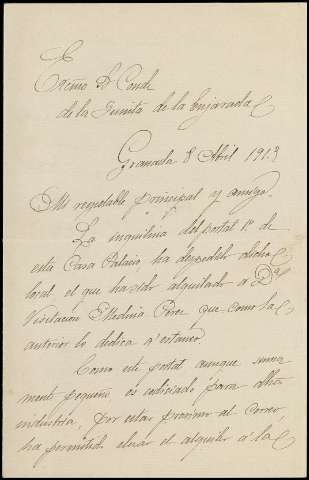 Excmo Sr Conde
de la Quinta de la Enjarada
Granada 8 Abril 1913
Mi respetable principal y amigo.
La inquilina del portal 1º de
esta Casa Palacio ha despedido dicho
local el que ha sido alquilado a Dª
Visitación Medina Pérez que como la
anterior lo dedica a estanco
Como este portal aunque suma
mente pequeño es codiciado para dicha
industria, por estar proximo al Correo,
ha permitido elevar el alquiler a la